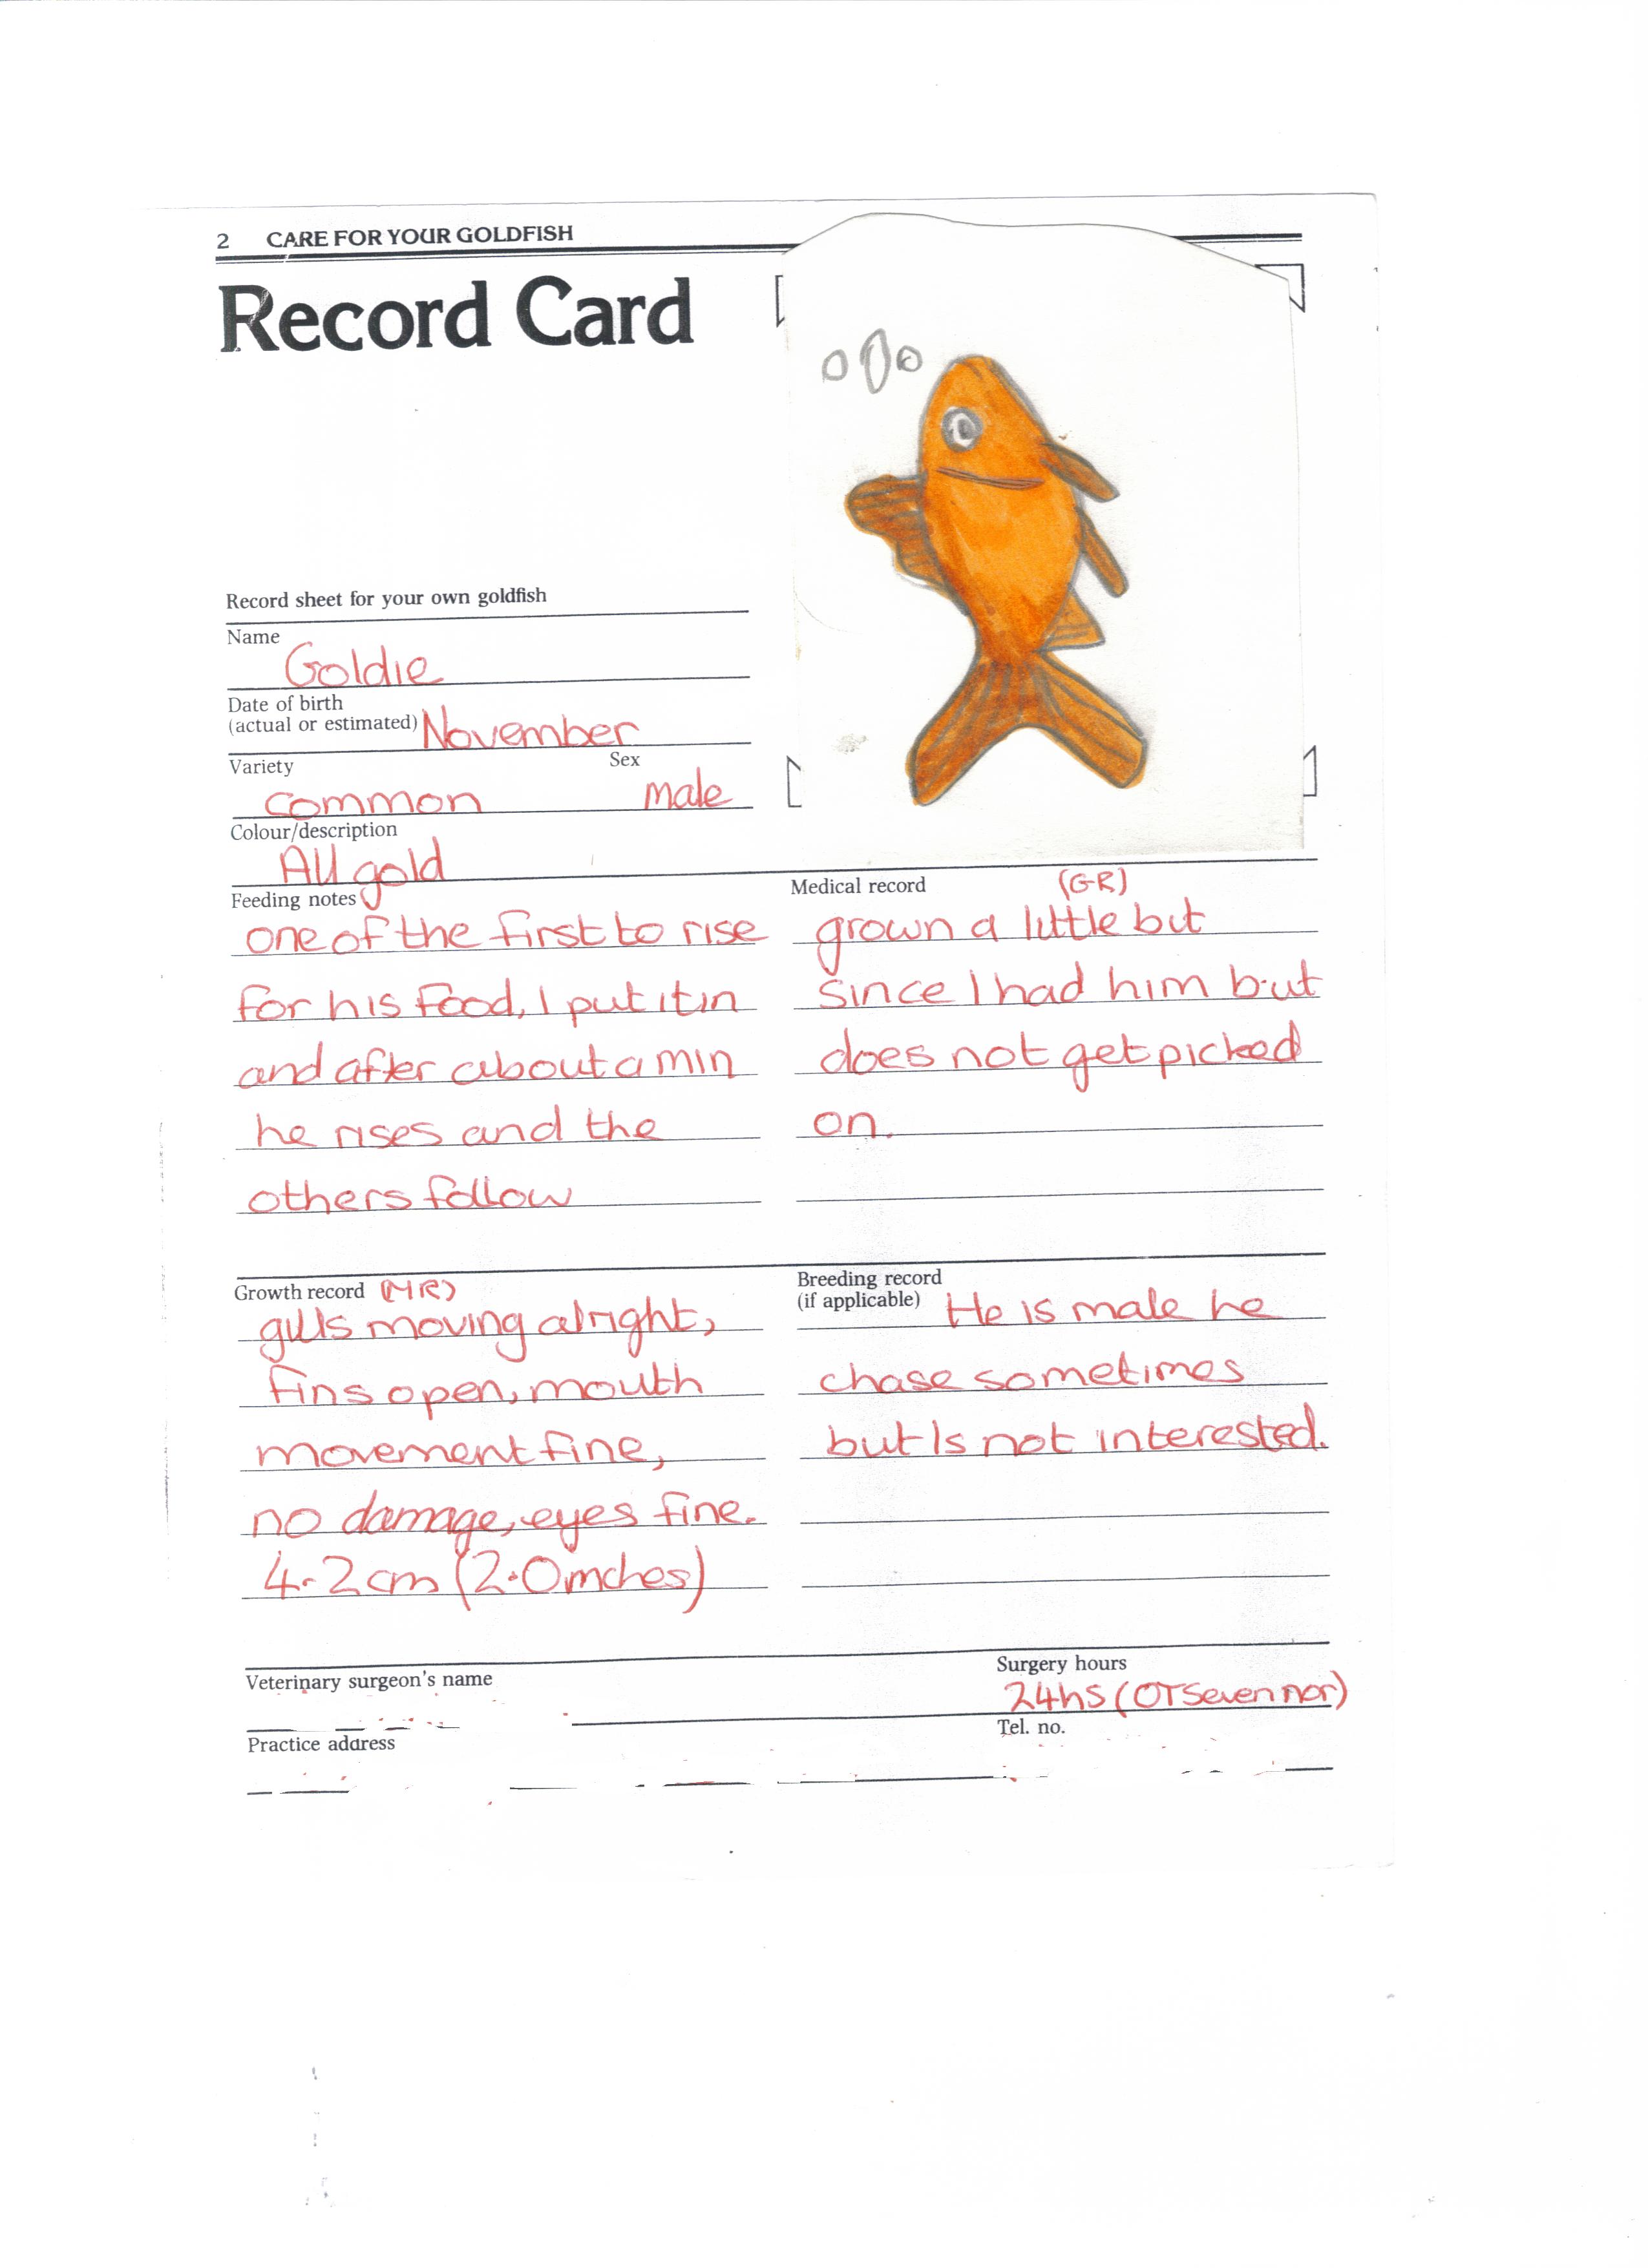 2 CARE FOR YOUR GOLDFISH
Record Card
Record sheet for your own goldfish
Name
Goldie
Date of birth
(actual or estimated) November
Variety Sex
common male
Colour/description
All gold
Feeding notes
one of the first to rise
for his food, I put it in
and after about a min
he rises and the
others follow
Medical record (GR)
grown a little but
since I had him but
does not get picked
on.
Growth record (MR)
gills moving alright,
fins open, mouth
movement fine,
no damage, eyes fine.
4.2cm (2.0inches)
Breeding record
(if applicable) He is male he
chase sometimes
but is not interested.
Veterinary surgeon's name
Surgery hours
24hs (OTSevennor)
Practice address
Tel. no.